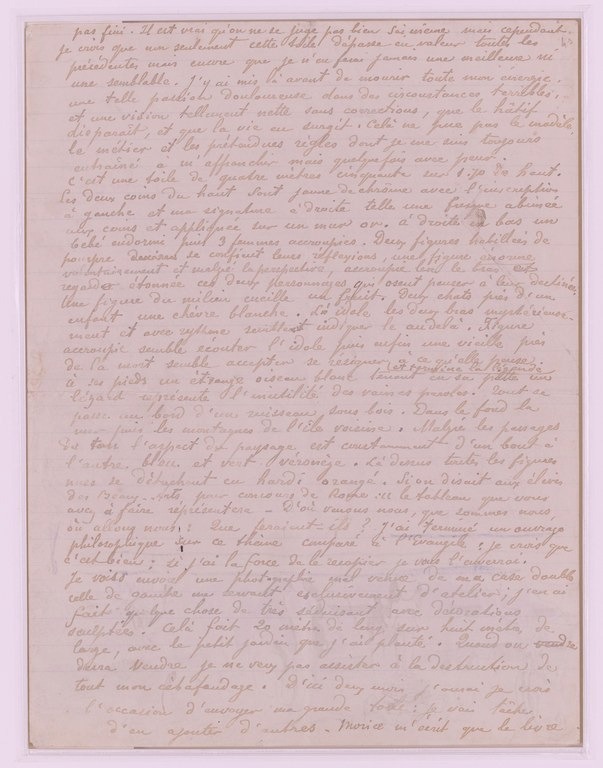 pas fini. Il est vrai qu'on ne se juge pas bien soi même mais cependant
je crois que non seulement cette toile dépasse en valeur toutes les
précédentes mais encore que je n'en ferai jamais une meilleure ni
une semblable. J'y ai mis là avant de mourir toute mon énergie,
une telle passion douloureuse dans des circonstances terribles,
et une vision tellement nette sans corrections, que le hâtif
disparaît, et que la vie en surgit. Celà ne pue pas le modèle,
le métier et les prétendues règles dont je me suis toujours
affranchi mais quelquefois avec peur.
C'est une toile de quatre mètres cinquante sur 1.70 de haut.
Les deux coins du haut sont jaune de chrome avec l'inscription
à gauche et ma signature à droite telle une fresque abimée
aux coins et appliquée sur un mur or. à droite en bas un
bébé endormi puis 3 femmes accroupies. Deux figures habillées de
pourpre se confient leurs réflexions, une figure enorme
volontairement et malgré la perspective, accroupie lève le bras et
regarde étonnée ces deux personnages qui osent penser à leur destinée.
Une figure du milieu cueille un fruit. Deux chats près d'un
enfant une chèvre blanche. L'idole les deux bras mystérieuse-
ment et avec rythme semble indiquer le au delà. Figure
accroupie semble écouter l'idole puis enfin une vieille près
de la mort semble accepter se résigner à ce qu'elle pense
(et termine la légende
à ses pieds un étrange oiseau blanc tenant en sa patte un
lézard représente l'inutilité des vaines paroles. Tout se
passe au bord d'un ruisseau sous bois. Dans le fond la
mer puis les montagnes de l'île voisine. Malgré les passages
de ton l'aspect du paysage est constamment d'un bout à
l'autre bleu et vert véronèse. Là dessus toutes les figures
nues se détachent en hardi orangé. Si on disait aux élèves
des Beaux-Arts pour concours de Rome: le tableau que vous
avez à faire représentera - D'où venons nous, que sommes nous,
où allons nous: Que feraient ils? J'ai terminé un ouvrage
philosophique sur ce thème comparé à l'Evangile: je crois que
c'est bien; si j'ai la force de le recopier je vous l'enverrai.
Je vous envoie une photographie mal venue de ma case double
celle de gauche me servant exclusivement d'atelier; j'en ai
fait quelque chose de très séduisant avec décorations
sculptées. Celà fait 20 mètres de long sur huit mètres de
large, avec le petit jardin que j'ai planté. Quand on
devra vendre je ne veux pas assister à la destruction de
tout mon échafaudage. D'ici deux mois j'aurai je crois
l'occasion d'envoyer ma grande toile: je vais tâcher
d'en ajouter d'autres. Morice m'écrit que le livre